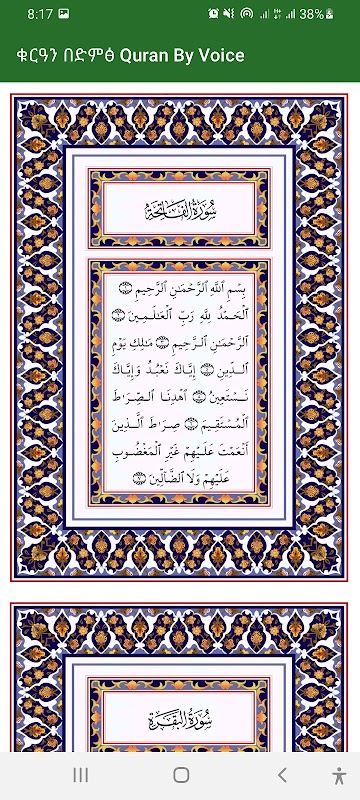 8:17
38%
ቁርዓን በድምፅ Quran By Voice
سُورَةُ الفَاتِحَةِ
بِسْمِ ٱللَّهِ ٱلرَّحْمَـٰنِ ٱلرَّحِيمِ ۝١
ٱلْحَمْدُ لِلَّهِ رَبِّ ٱلْعَـٰلَمِينَ ۝٢
ٱلرَّحْمَـٰنِ ٱلرَّحِيمِ ۝٣ مَـٰلِكِ يَوْمِ
ٱلدِّينِ ۝٤ إِيَّاكَ نَعْبُدُ وَإِيَّاكَ
نَسْتَعِينُ ۝٥ ٱهْدِنَا ٱلصِّرَٰطَ
ٱلْمُسْتَقِيمَ ۝٦ صِرَٰطَ ٱلَّذِينَ
أَنْعَمْتَ عَلَيْهِمْ غَيْرِ ٱلْمَغْضُوبِ
عَلَيْهِمْ وَلَا ٱلضَّآلِّينَ ۝٧
سُورَةُ البَقَرَةِ